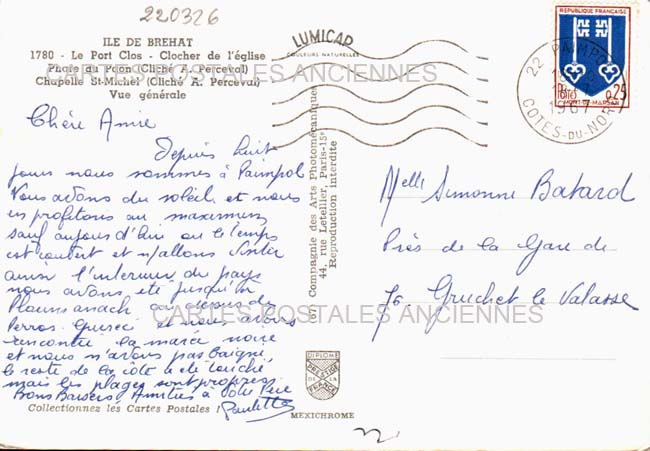 220326
ILE DE BREHAT
1780 - Le Port Clos - Clocher de l'église
Phare du Paon (Cliché A. Perceval)
Chapelle St-Michel (Cliché A. Perceval)
Vue générale
CARTES POSTALES ANCIENNES
LUMICAP
COULEURS NATURELLES
REPUBLIQUE FRANÇAISE
0,25
POSTES
MONT-DE-MARSAN
22 PAIMPOL
1967
COTES-DU-NORD
Chère Amie
Depuis huit
jours nous sommes à Paimpol
Nous avons du soleil et nous
en profitons au maximum
sauf aujourd'hui ou le temps
est couvert et n/allons visiter
ainsi l'interieur du pays
nous avons été jusqu'à
Ploumanach au dessus de
Perros-Guirec et nous avons
rencontré la marée noire
et nous n'avons pas baigné,
le reste de la côte a été touché
mais les plages sont propres
Bons Baisers Amitiés à votre Père
Paulette
Collectionnez les Cartes Postales !
(67) Compagnie des Arts Photomécaniques
44, rue Letellier, Paris-15e
Reproduction interdite
Melle Simonne Batard
Près de la Gare de
76. Gruchet le Valasse
CARTES POSTALES ANCIENNES
DIPLOME
PRESTIGE
DE LA
FRANCE
MEXICHROME